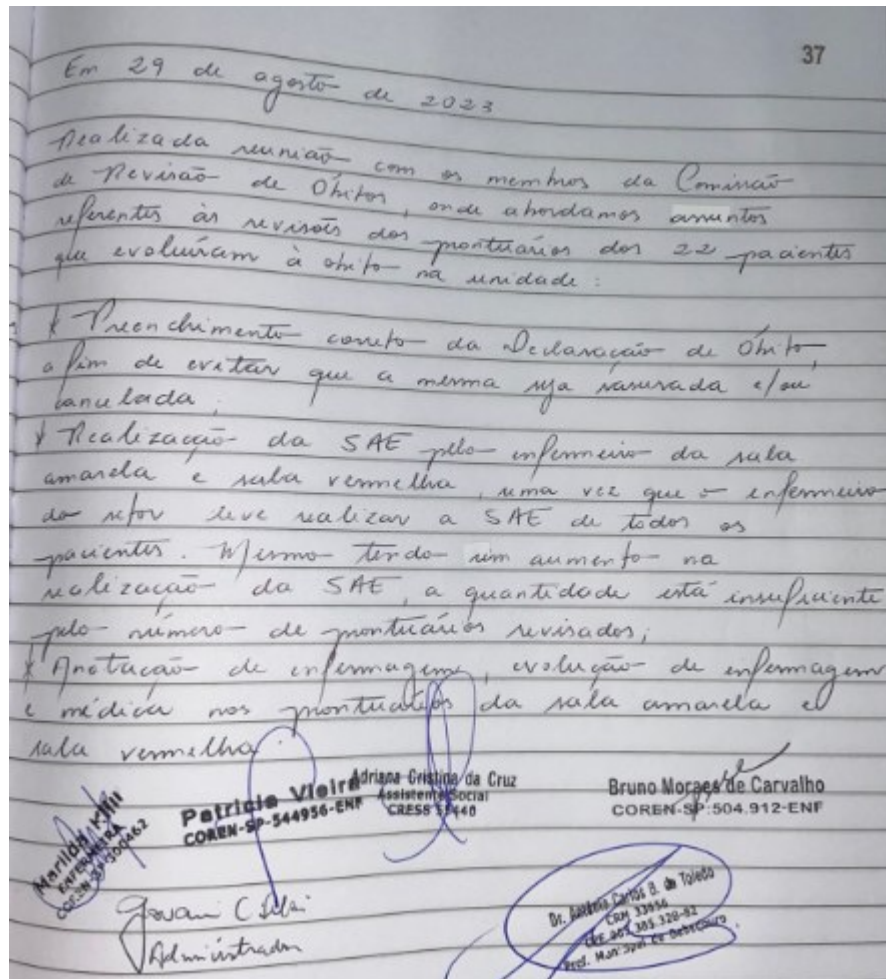 37
Em 29 de agosto de 2023
Realizada reunião com os membros da Comissão
de Revisão de Óbitos, onde abordamos assuntos
referentes às revisões dos prontuários dos 22 pacientes
que evoluíram à óbito na unidade:
* Preenchimento correto da Declaração de Óbito,
a fim de evitar que a mesma seja rasurada e/ou
cancelada;
* Realização da SAE pelo enfermeiro da sala
amarela e sala vermelha, uma vez que o enfermeiro
do setor deve realizar a SAE de todos os
pacientes. Mesmo tendo um aumento na
realização da SAE, a quantidade está insuficiente
pelo número de prontuários revisados;
* Anotação de enfermagem, evolução de enfermagem
e médica nos prontuários da sala amarela e
sala vermelha.
Marilda
ENFERMEIRA
Patricia Vieira
COREN-SP-544956-ENF
Adriana Cristina da Cruz
Assistente Social
CRESS
Bruno Moraes de Carvalho
COREN-SP:504.912-ENF
Administrador
Dr. Antônio Carlos B. de Toledo
CRM 33956